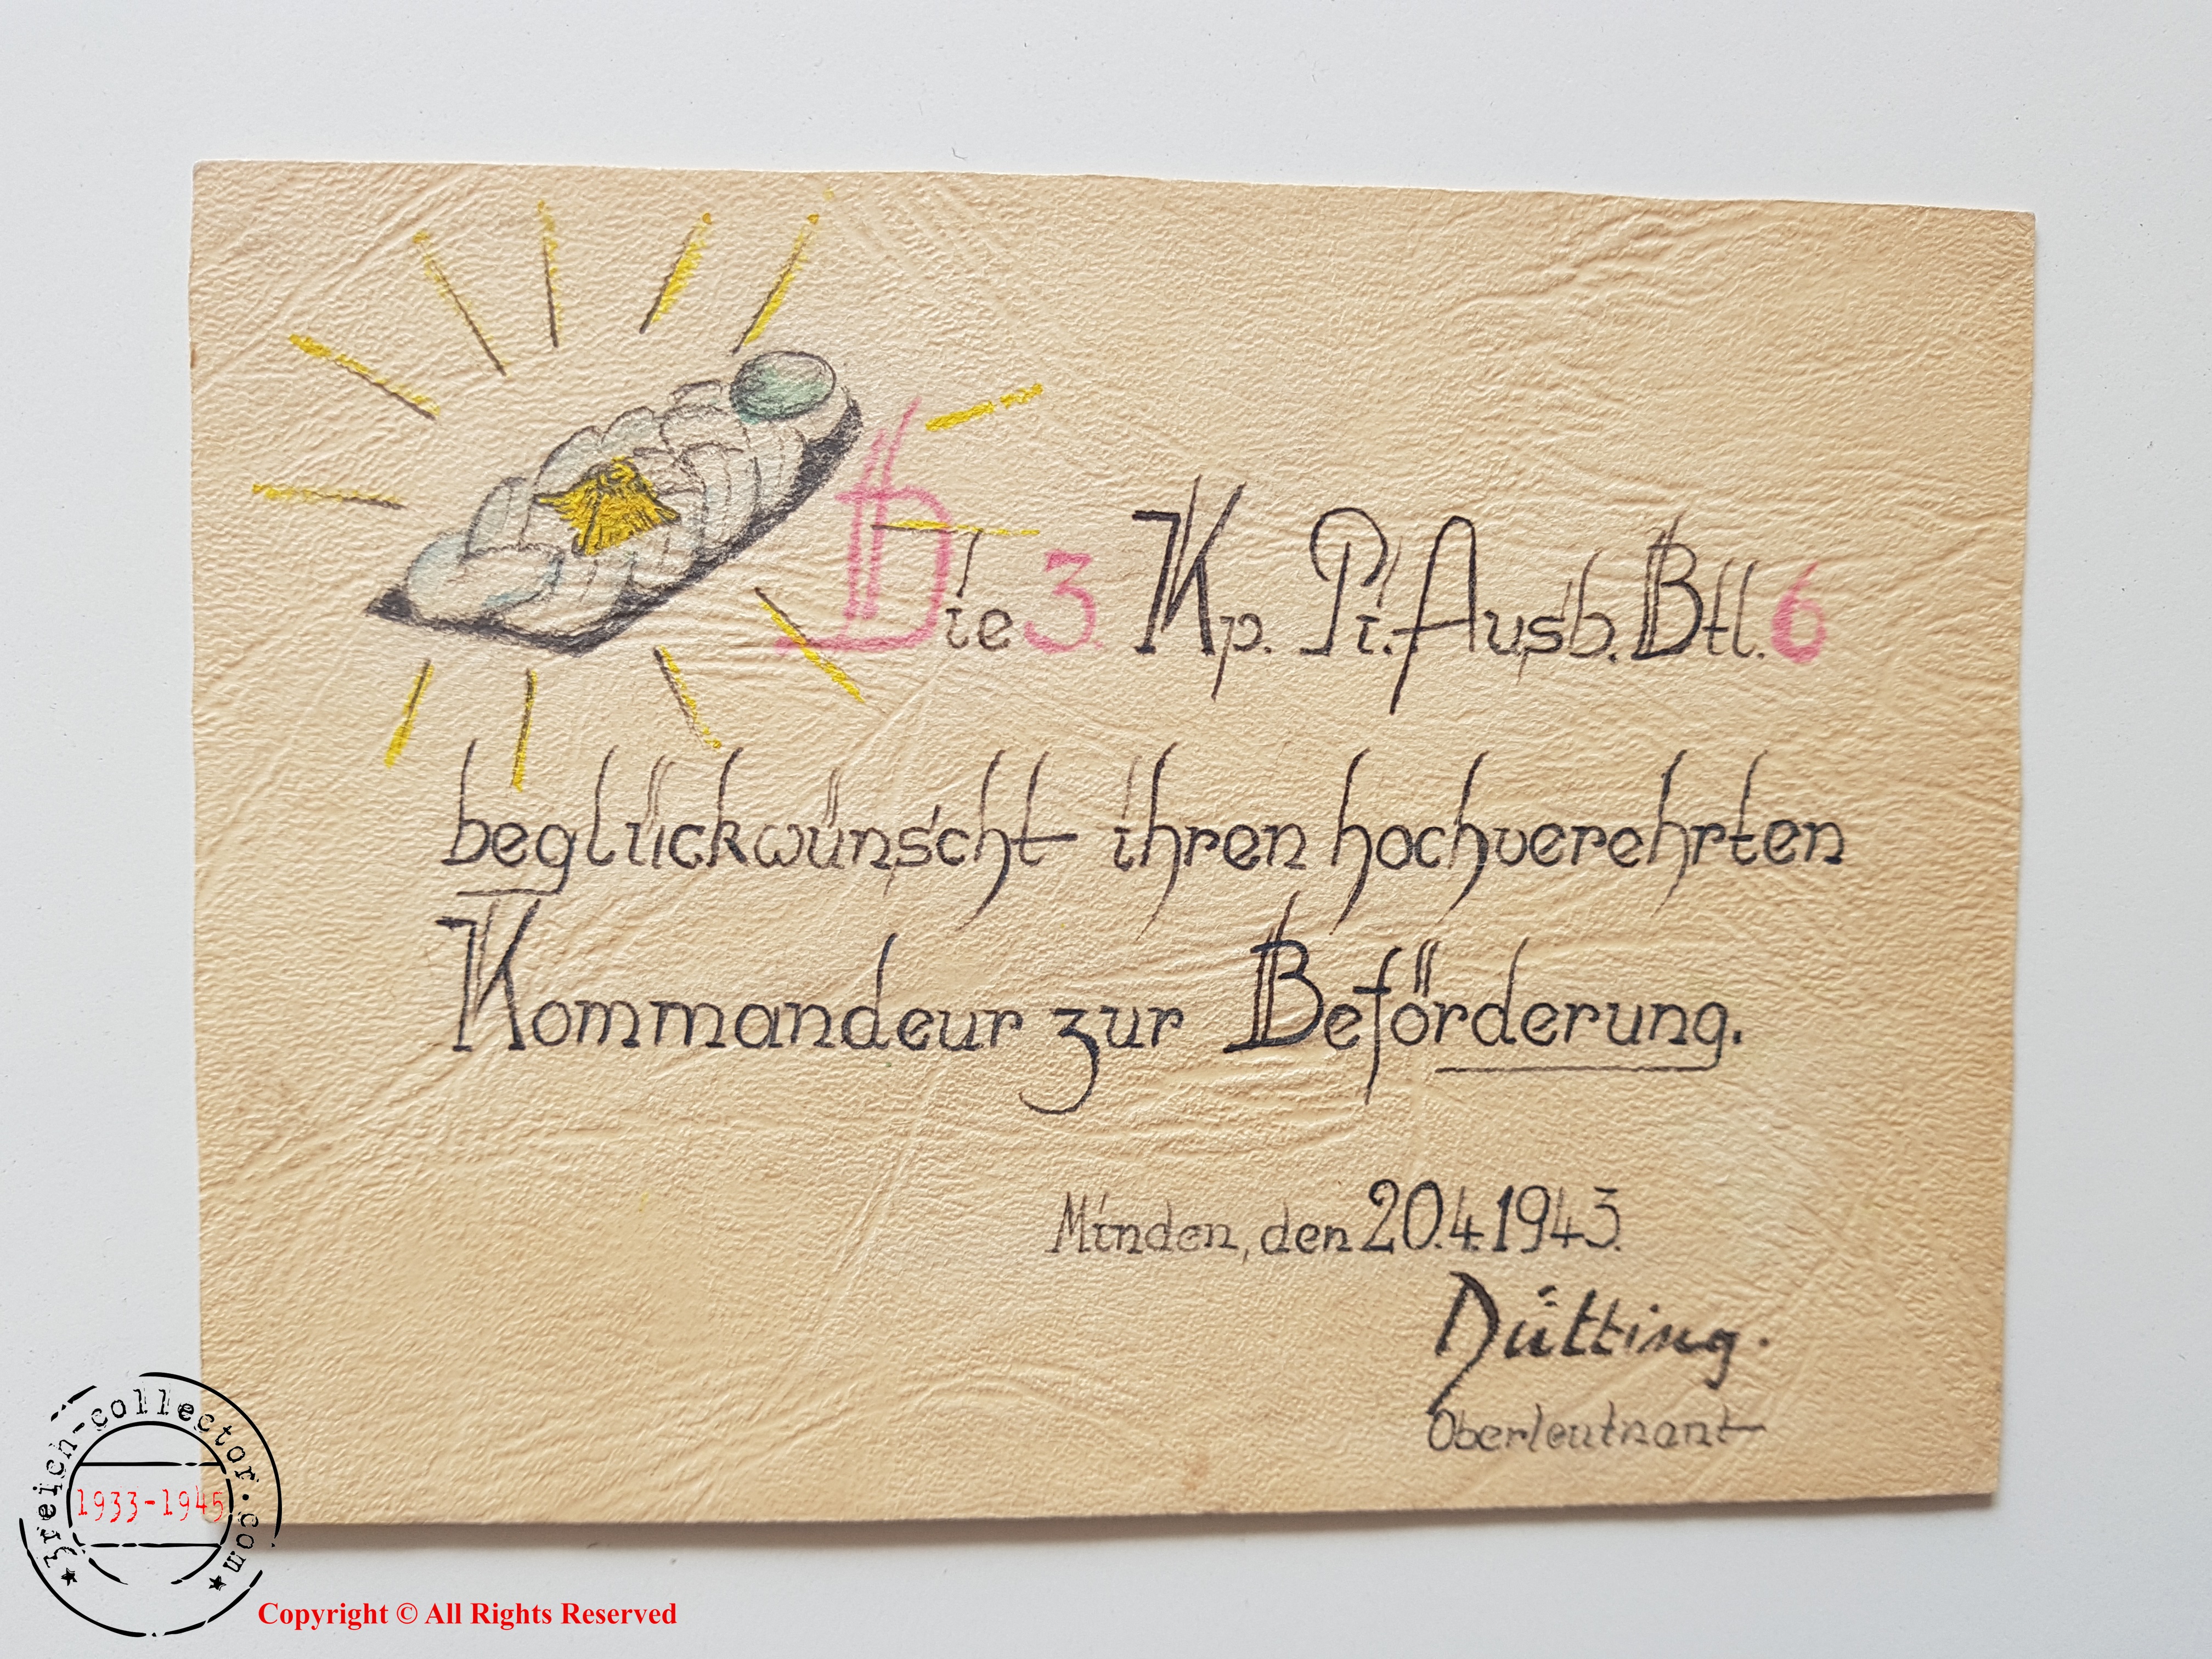 Die 3. Kp. Pi.-Ausb. Btl. 6
beglückwünscht ihren hochverehrten
Kommandeur zur Beförderung.
Minden, den 20.4.1943.
Dütting.
Oberleutnant
3reich-collector.com
1933-1945
Copyright © All Rights Reserved